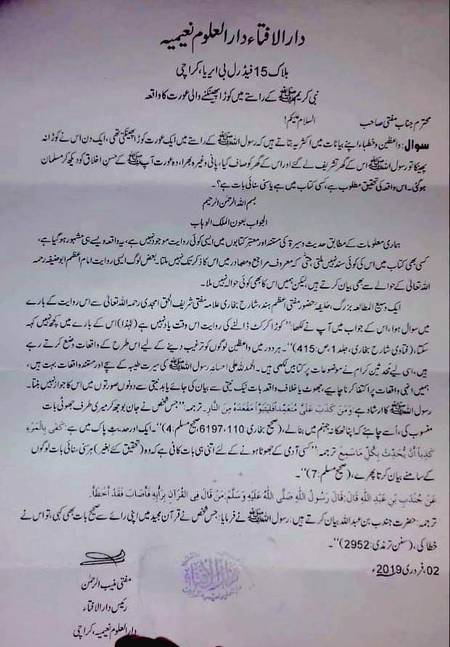 دار الافتاء دار العلوم نعیمیہ
بلاک 15 فیڈرل بی ایریا، کراچی
نبی کریم ﷺ کے راستے میں کوڑا پھینکنے والی عورت کا واقعہ
محترم جناب مفتی صاحب السلام علیکم!
سوال: واعظین و خطباء اپنے بیانات میں اکثر یہ بتاتے ہیں کہ رسول اللہ ﷺ کے راستے میں ایک عورت کوڑا پھینکتی تھی، ایک دن اس نے کوڑا نہ
پھینکا تو رسول اللہ ﷺ اس کے گھر تشریف لے گئے اور اس کے گھر کو صاف کیا، پانی وغیرہ بھرا، وہ عورت آپ ﷺ کے حسنِ اخلاق کو دیکھ کر مسلمان
ہوگئی۔ اس واقعہ کی تحقیق مطلوب ہے، کسی کتاب میں ہے یا سنی سنائی بات ہے؟۔
بسم اللہ الرحمٰن الرحیم
الجواب بعون الملک الوہاب
ہماری معلومات کے مطابق حدیث و سیرۃ کی مستند اور معتبر کتابوں میں ایسی کوئی روایت موجود نہیں ہے، یہ واقعہ ویسے ہی مشہور ہوگیا ہے،
کسی بھی کتاب میں اس کی کوئی سند نہیں ملتی حتیٰ کہ معروف مراجع و مصادر میں اس کا ذکر تک نہیں ملتا۔ بعض لوگ ایسی روایت امام اعظم ابوحنیفہ رحمہ
اللہ تعالیٰ کے حوالے سے بھی بیان کرتے ہیں لیکن ہمیں اس کا بھی کوئی حوالہ نہیں ملا۔
ایک وسیع المطالعہ بزرگ، خلیفہ حضور مفتی اعظم ہند، شارح بخاری علامہ مفتی شریف الحق امجدی رحمہ اللہ تعالیٰ سے اس روایت کے بارے
میں سوال ہوا، اس کے جواب میں آپ نے لکھا: ''کوڑا کرکٹ ڈالنے کی روایت اس وقت یاد نہیں ہے (لہٰذا) اس کے بارے میں کچھ نہیں کہہ
سکتا، (فتاویٰ شارح بخاری، جلد 1، ص: 415)''۔ ہر دور میں واعظین لوگوں کو ترغیب دینے کے لیے اس طرح کے واقعات وضع کرتے رہے
ہیں، اسی لیے محدثین کرام نے موضوعات پر کتابیں لکھی ہیں۔ الحمد للہ علیٰ احسانہ رسول اللہ ﷺ کی سیرت طیبہ کے سچے اور مستند واقعات بہت ہیں،
ہمیں انہی واقعات پر اکتفا کرنا چاہیے، جھوٹ یا خلاف واقعہ بات نیک نیتی سے بیان کی جائے یا بدنیتی سے دونوں صورتوں میں اس کا جواز نہیں بنتا۔
رسول اللہ ﷺ کا ارشاد ہے: وَمَنْ كَذَبَ عَلَيَّ مُتَعَمِّدًا فَلْيَتَبَوَّأْ مَقْعَدَهُ مِنَ النَّارِ۔ ترجمہ: ''جس شخص نے جان بوجھ کر میری طرف جھوٹی بات
منسوب کی، اُسے چاہیے کہ اپنا ٹھکانہ جہنم میں بنالے، (صحیح بخاری 110، 6197، صحیح مسلم: 4)''۔ ایک اور حدیث پاک میں ہے: كَفَى بِالْمَرْءِ
كَذِبًا أَنْ يُحَدِّثَ بِكُلِّ مَا سَمِعَ ترجمہ: ''کسی آدمی کے جھوٹا ہونے کے لئے اتنی ہی بات کافی ہے کہ وہ (تحقیق کئے بغیر) ہر سنی سنائی بات لوگوں
کے سامنے بیان کرتا پھرے، (صحیح مسلم: 7)''۔
عَنْ جُنْدَبِ بْنِ عَبْدِ اللَّهِ قَالَ: قَالَ رَسُولُ اللَّهِ صَلَّى اللَّهُ عَلَيْهِ وَسَلَّمَ مَنْ قَالَ فِي الْقُرْآنِ بِرَأْيِهِ فَأَصَابَ فَقَدْ أَخْطَأَ.
ترجمہ: حضرت جندب بن عبداللہ بیان کرتے ہیں: رسول اللہ ﷺ نے فرمایا: جس شخص نے قرآن مجید میں اپنی رائے سے صحیح بات بھی کہی، تو اس نے
خطا کی، (سنن ترمذی: 2952)''۔
02، فروری 2019ء
مفتی منیب الرحمٰن
رئیس دارالافتاء
دارالعلوم نعیمیہ، کراچی